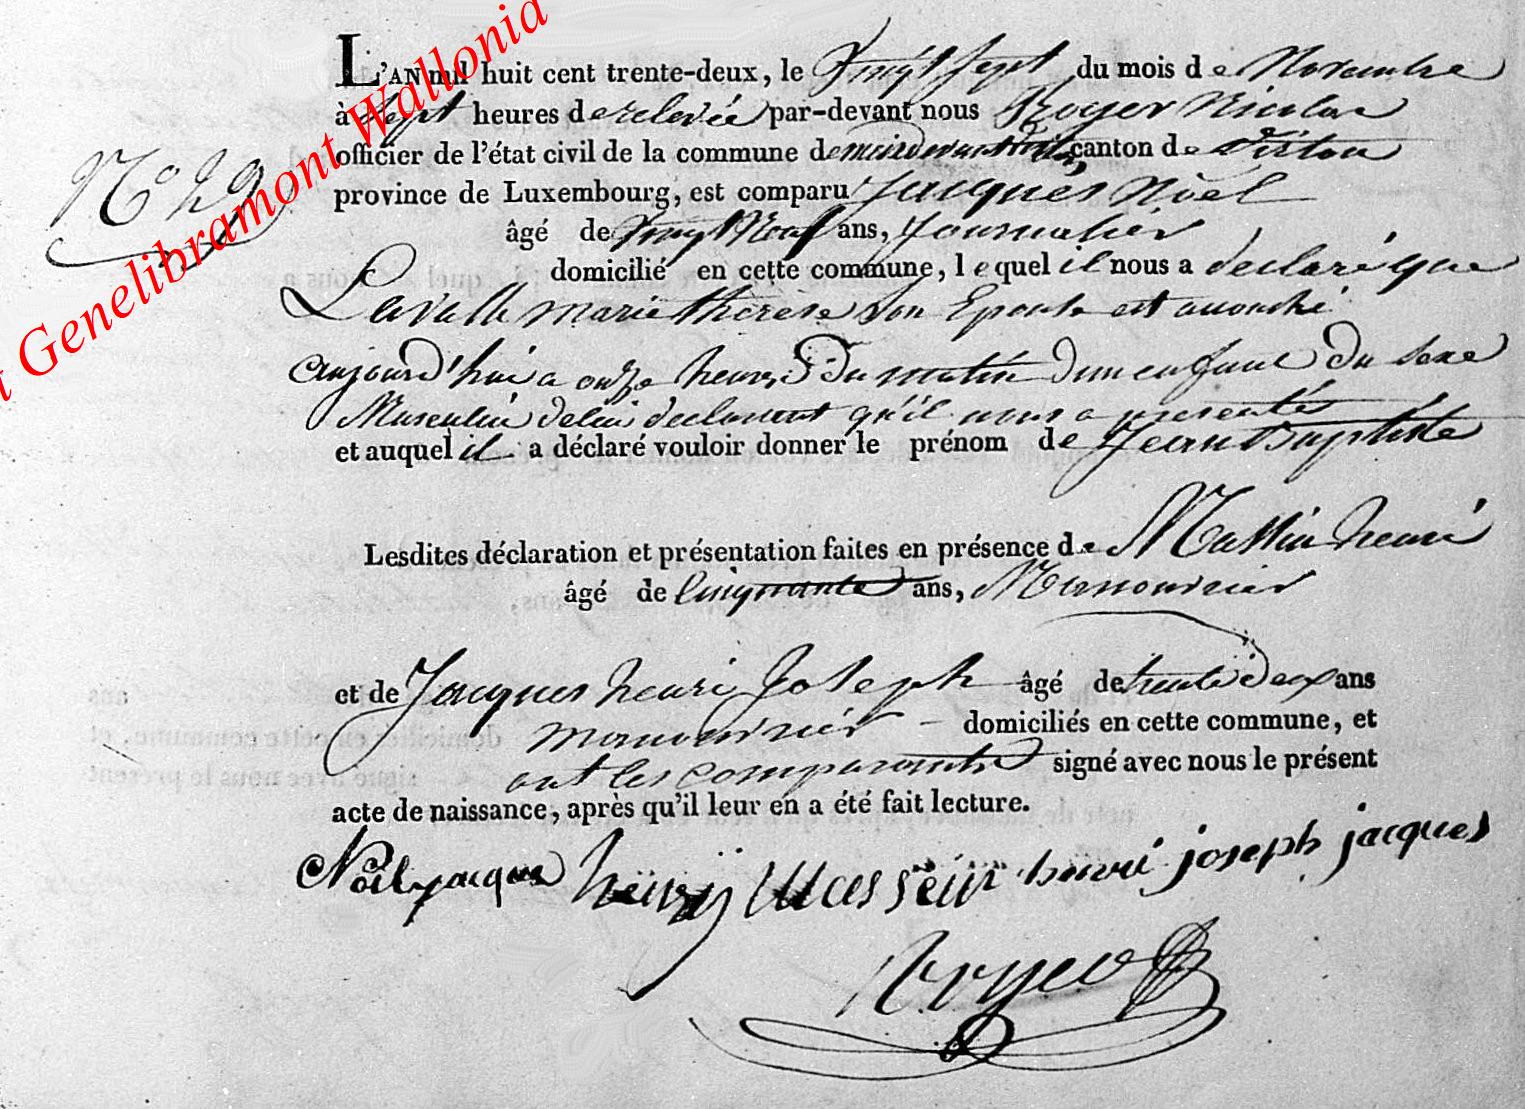 Genelibramont Wallonia
N.o 29
L'AN mil huit cent trente-deux, le Vingt sept du mois de Novembre
à sept heures de relevée par-devant nous Royer Nicolas
officier de l'état civil de la commune de meix devant virton canton de Virton
province de Luxembourg, est comparu Jacques Noël
âgé de Vingt Neuf ans, Journalier
domicilié en cette commune, lequel il nous a declaré que
Lavalle marie therese son Epouse est accouché
aujourd'hui a onze heures du matin d'un enfant du sexe
Masculin de lui declarant qu'il nous a presentés
et auquel il a déclaré vouloir donner le prénom de Jean Baptiste
Lesdites déclaration et présentation faites en présence de Massin henri
âgé de Cinquante ans, Manouvrier
et de Jacques henri Joseph âgé de trente deux ans
manouvrier domiciliés en cette commune, et
ont les comparants signé avec nous le présent
acte de naissance, après qu'il leur en a été fait lecture.
Noël jacques henry Massein henri joseph jacques
Royer